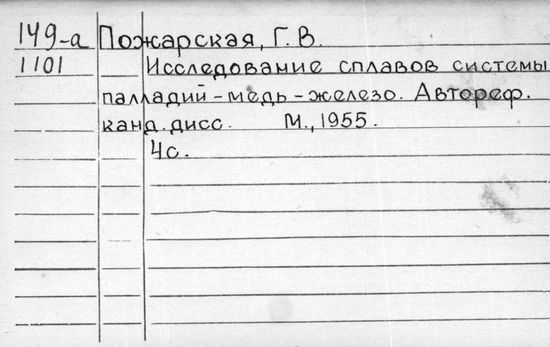 149-а Пожарская, Г. В.
1101 Исследование сплавов системы
палладий-медь-железо. Автореф.
канд. дисс. М., 1955.
4с.